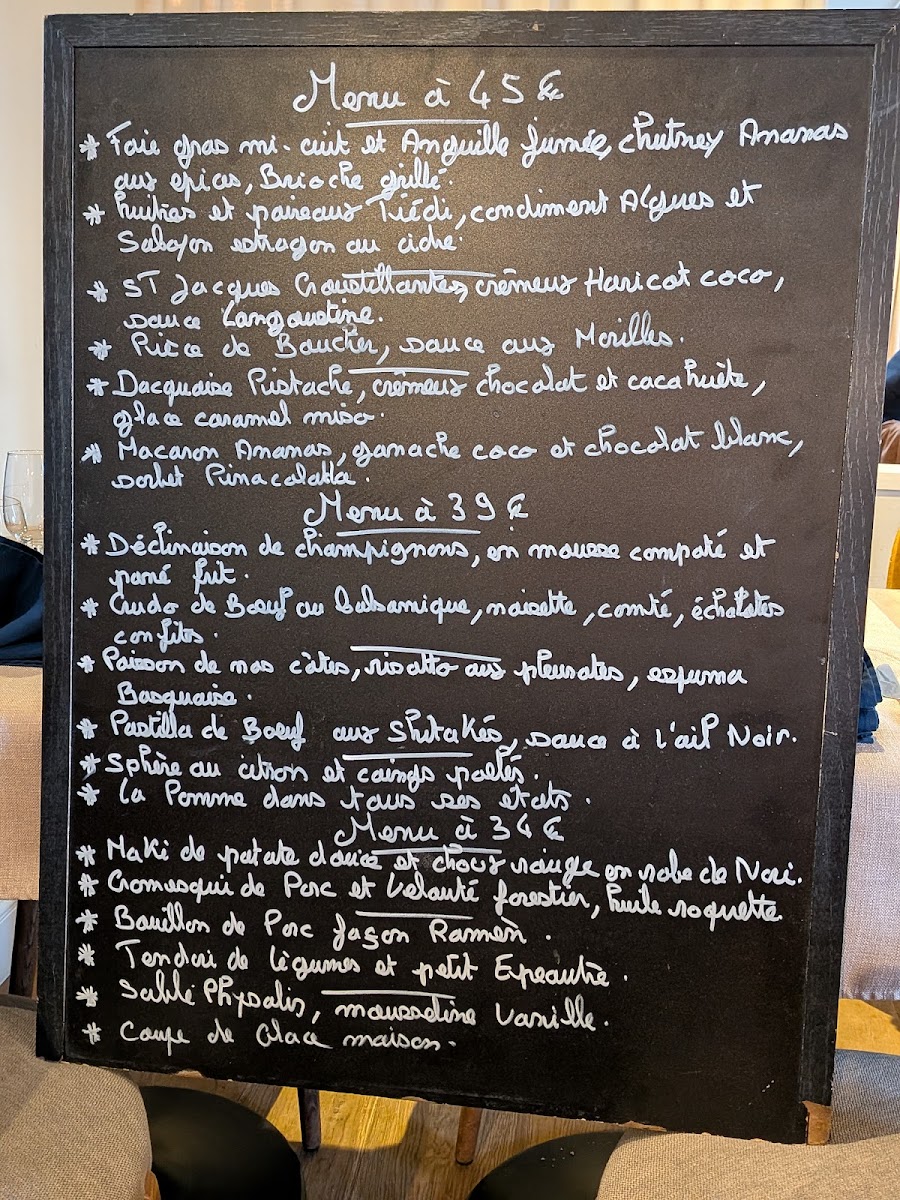 Menu à 45 €
* Foie gras mi-cuit et Anguille fumée, chutney Ananas
aux epices, Brioche grillé.
* huitres et poireaux Tiédi, condiment Algues et
Sabayon estragon au cidre.
* ST Jacques Croustillantes, crêmeux Haricot coco,
sauce Langoustine.
* Pièce de Boucher, sauce aux Morilles.
* Dacquoise Pistache, crêmeux chocolat et cacahuète,
glace caramel miso.
* Macaron Ananas, ganache coco et chocolat blanc,
sorbet Pinacolada.
Menu à 39 €
* Déclinaison de champignons, en mousse compoté et
pané frit.
* Crudo de Boeuf au Balsamique, noisette, comté, échalotes
confites.
* Poisson de nos côtes, risotto aux pleurotes, espuma
Basquaise.
* Pastilla de Boeuf aux Shitakés, sauce à l'ail Noir.
* Sphère au citron et coings poêlés.
* La Pomme dans tous ses etats.
Menu à 34 €
* Maki de patate douce et choux rouge en robe de Nori.
* Cromesqui de Porc et Velouté forestier, huile roquette
* Bouillon de Porc façon Ramen.
* Tandori de légumes et petit Epeautre.
* Sablé Physalis, mousseline Vanille.
* Coupe de Glace maison.